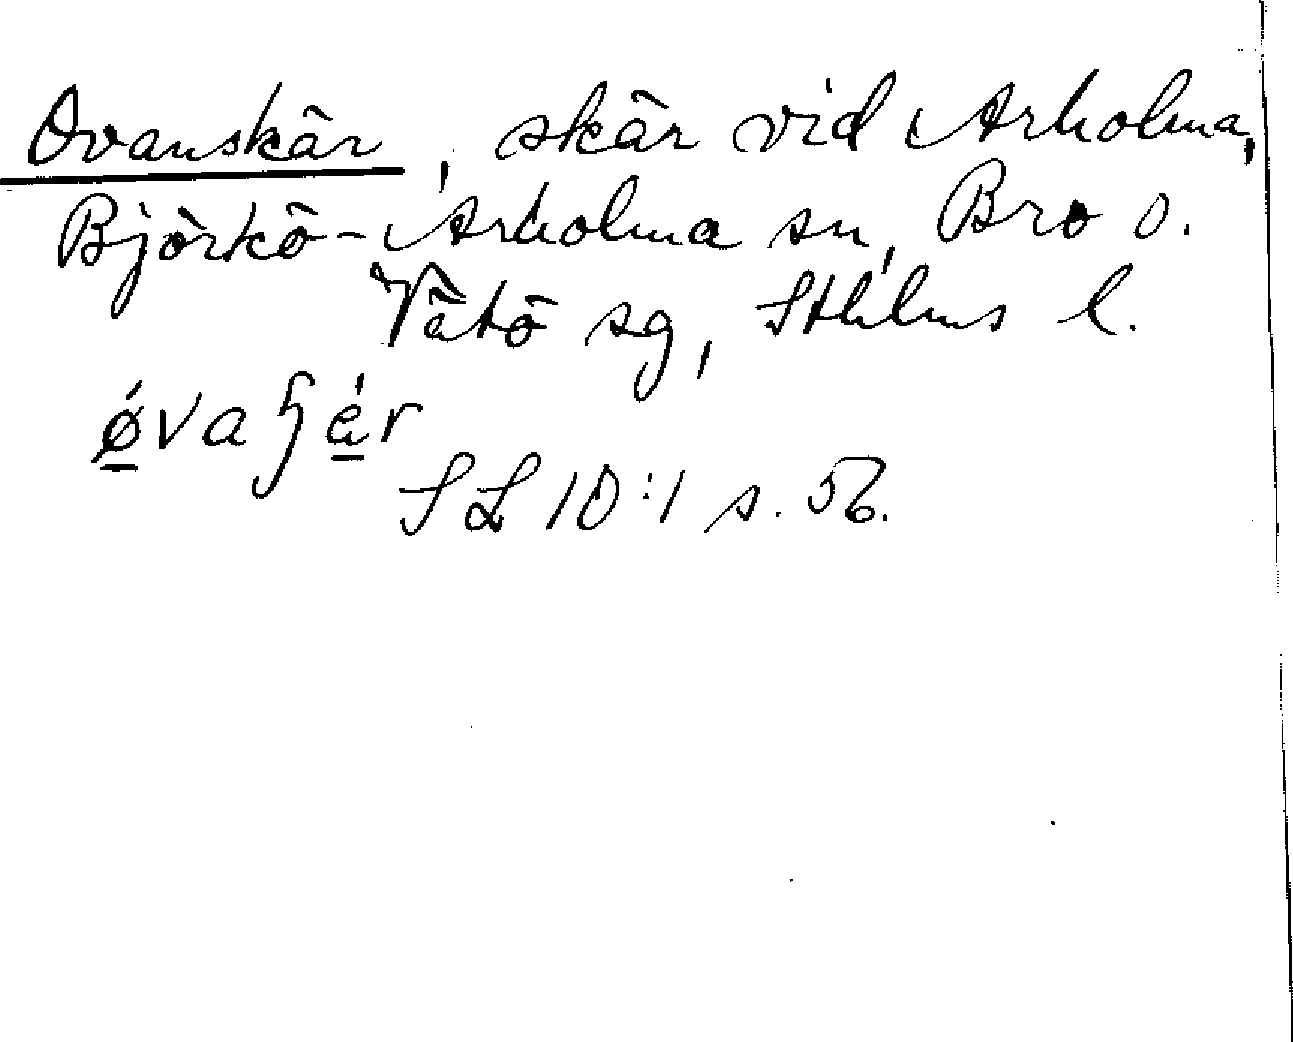 Ovanskär, skär vid Arholma,
Björkö-Arholma sn, Bro o.
Vätö sg, Sthlms l.
ǿvaʃä́r
SL 10:1 s. 56.